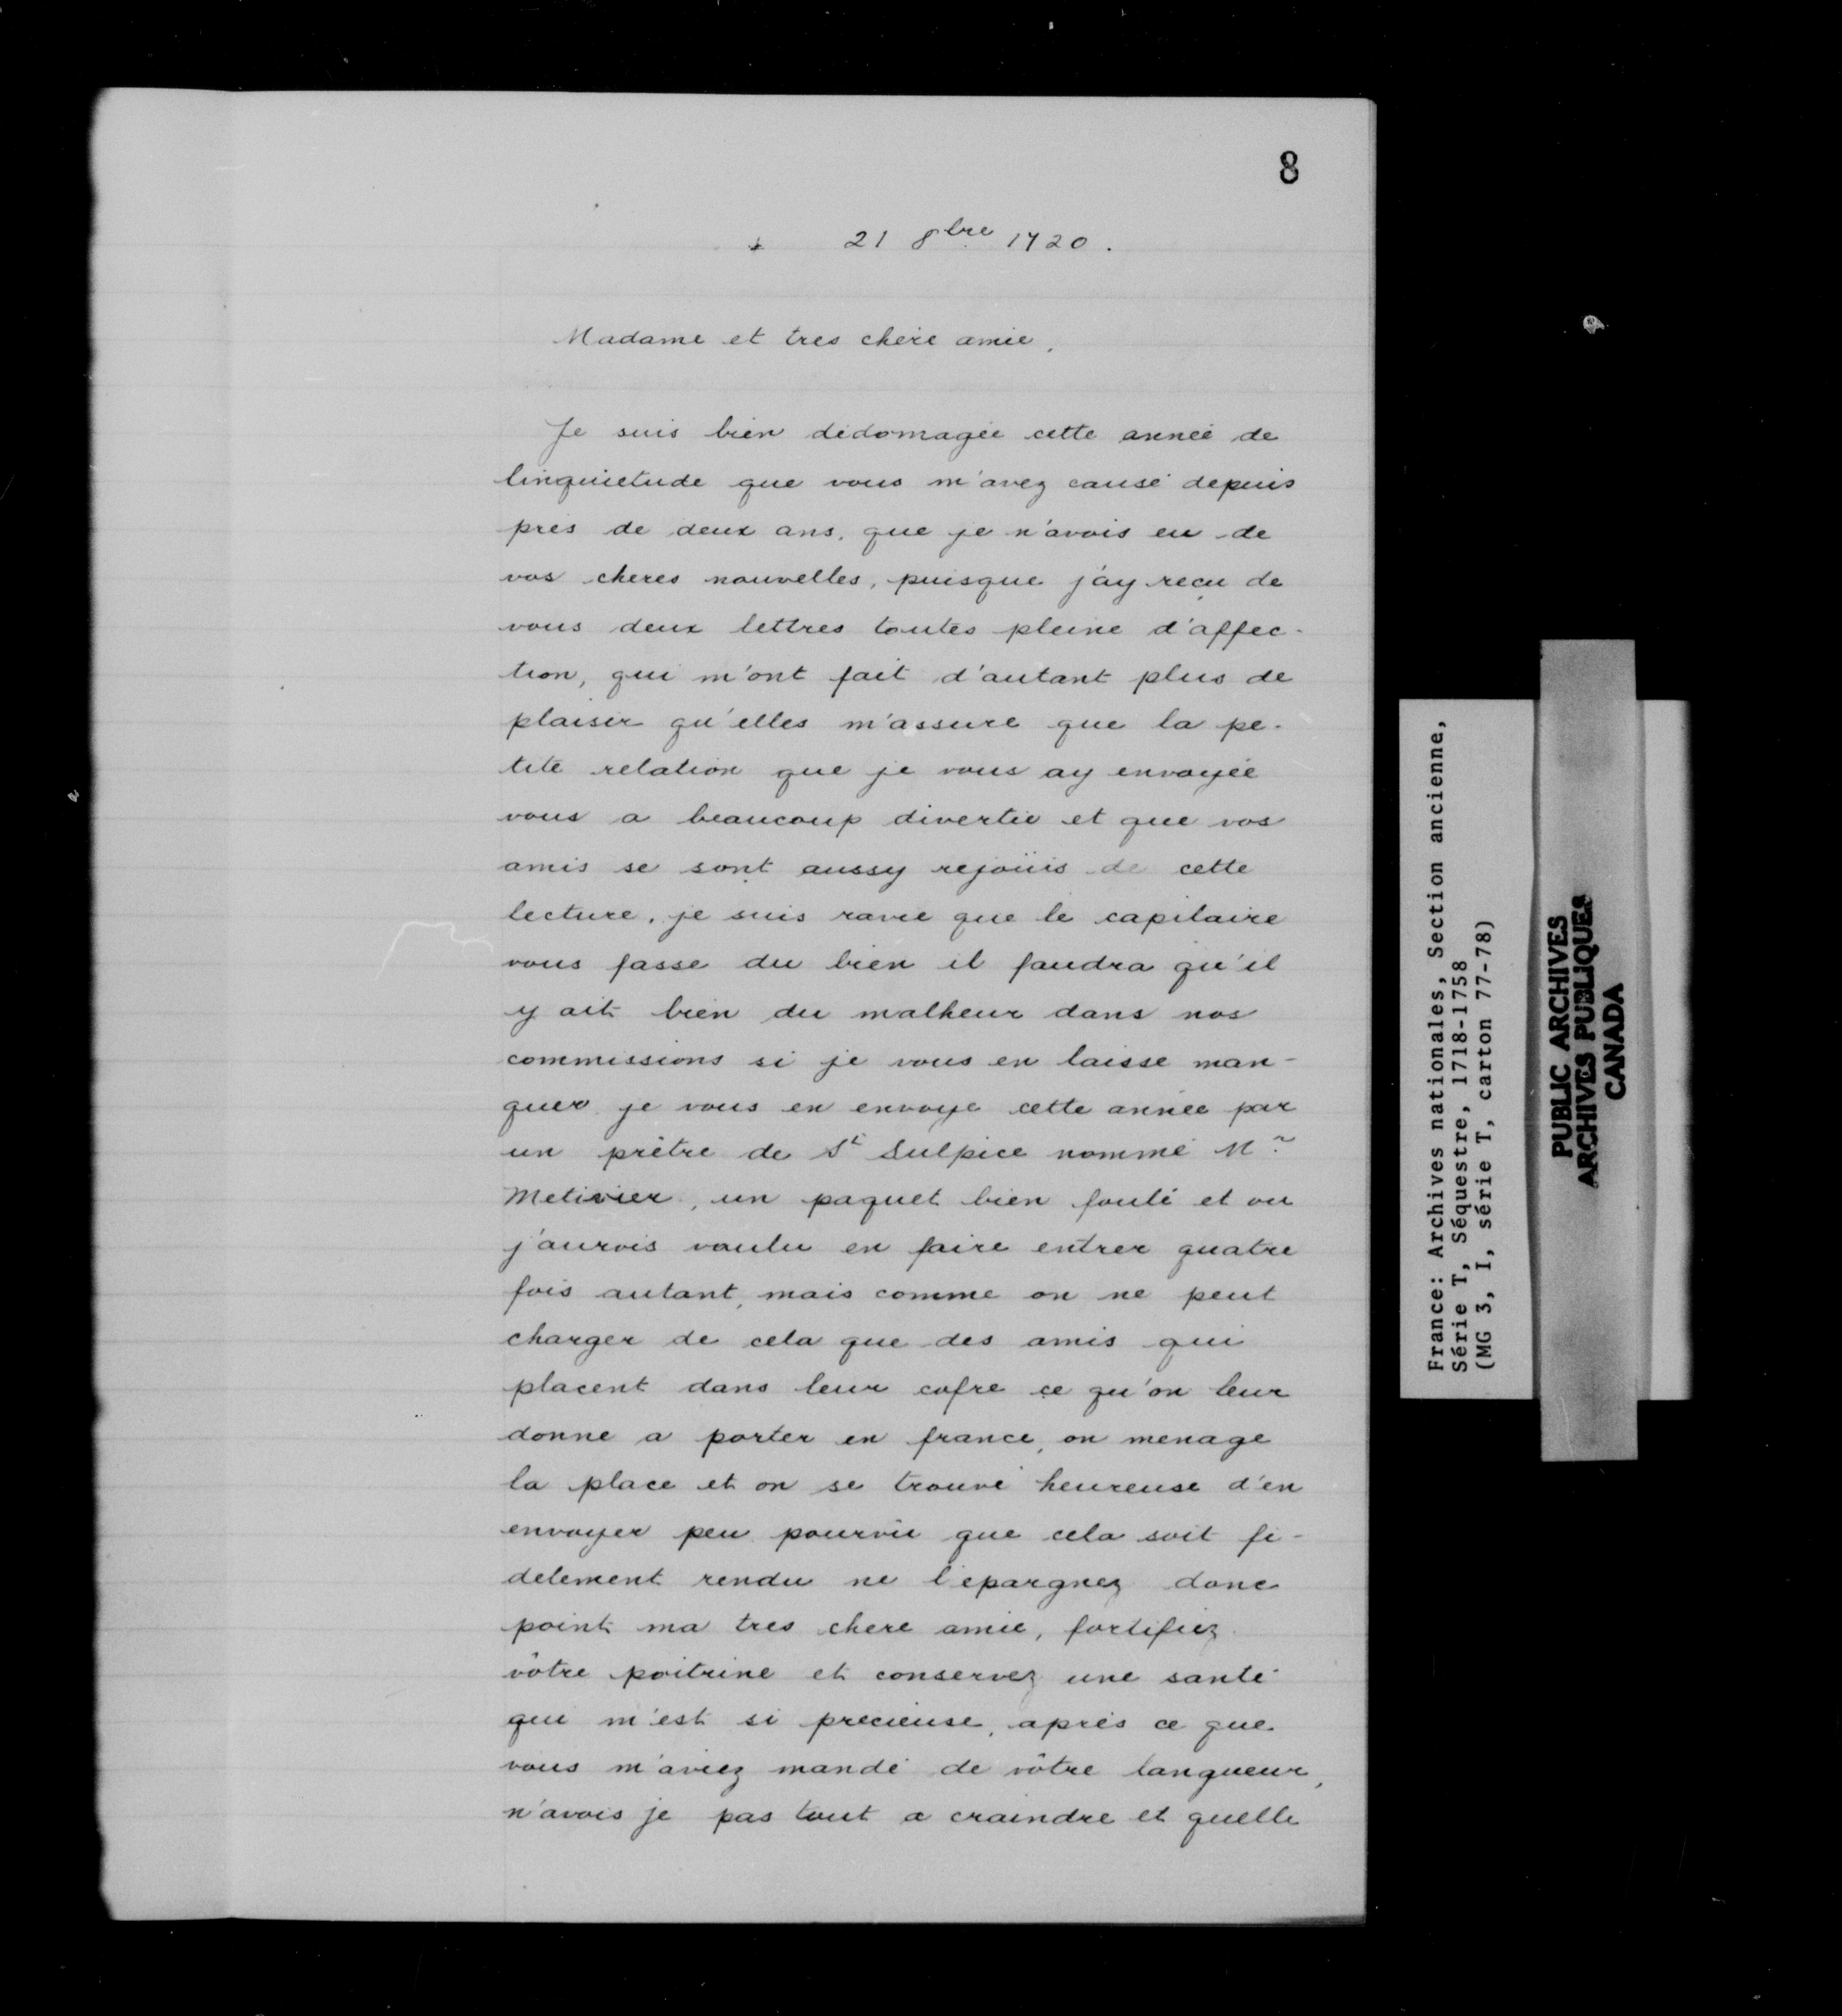 8
21 8bre 1720.
Madame et tres chere amie,
Je suis bien dédomagée cette année de
linquietude que vous m'avez causé depuis
près de deux ans, que je n'avois eu de
vos cheres nouvelles, puisque j'ay reçu de
vous deux lettres toutes pleine d'affec-
tion, qui m'ont fait d'autant plus de
plaisir qu'elles m'assure que la pe-
tite relation que je vous ay envoyée
vous a beaucoup divertie et que vos
amis se sont aussy rejoüis de cette
lecture, je suis ravie que le capilaire
vous fasse du bien il faudra qu'il
y ait bien du malheur dans nos
commissions si je vous en laisse man-
quer je vous en envoye cette année par
un prêtre de St Sulpice nommé Mr
Metivier, un paquet bien foulé et ou
j'aurois voulu en faire entrer quatre
fois autant, mais comme on ne peut
charger de cela que des amis qui
placent dans leur cofre ce qu'on leur
donne a porter en france, on menage
la place et on se trouve heureuse d'en
envoyer peu pourvû que cela soit fi-
delement rendu ne l'epargnez donc
point ma tres chere amie, fortifiez
vôtre poitrine et conservez une santé
qui m'est si precieuse, après ce que
vous m'aviez mandé de vôtre langueur,
n'avois je pas tout a craindre et quelle
France: Archives nationales, Section ancienne,
Série T, Séquestre, 1718-1758
(MG 3, I, série T, carton 77-78)
PUBLIC ARCHIVES
ARCHIVES PUBLIQUES
CANADA